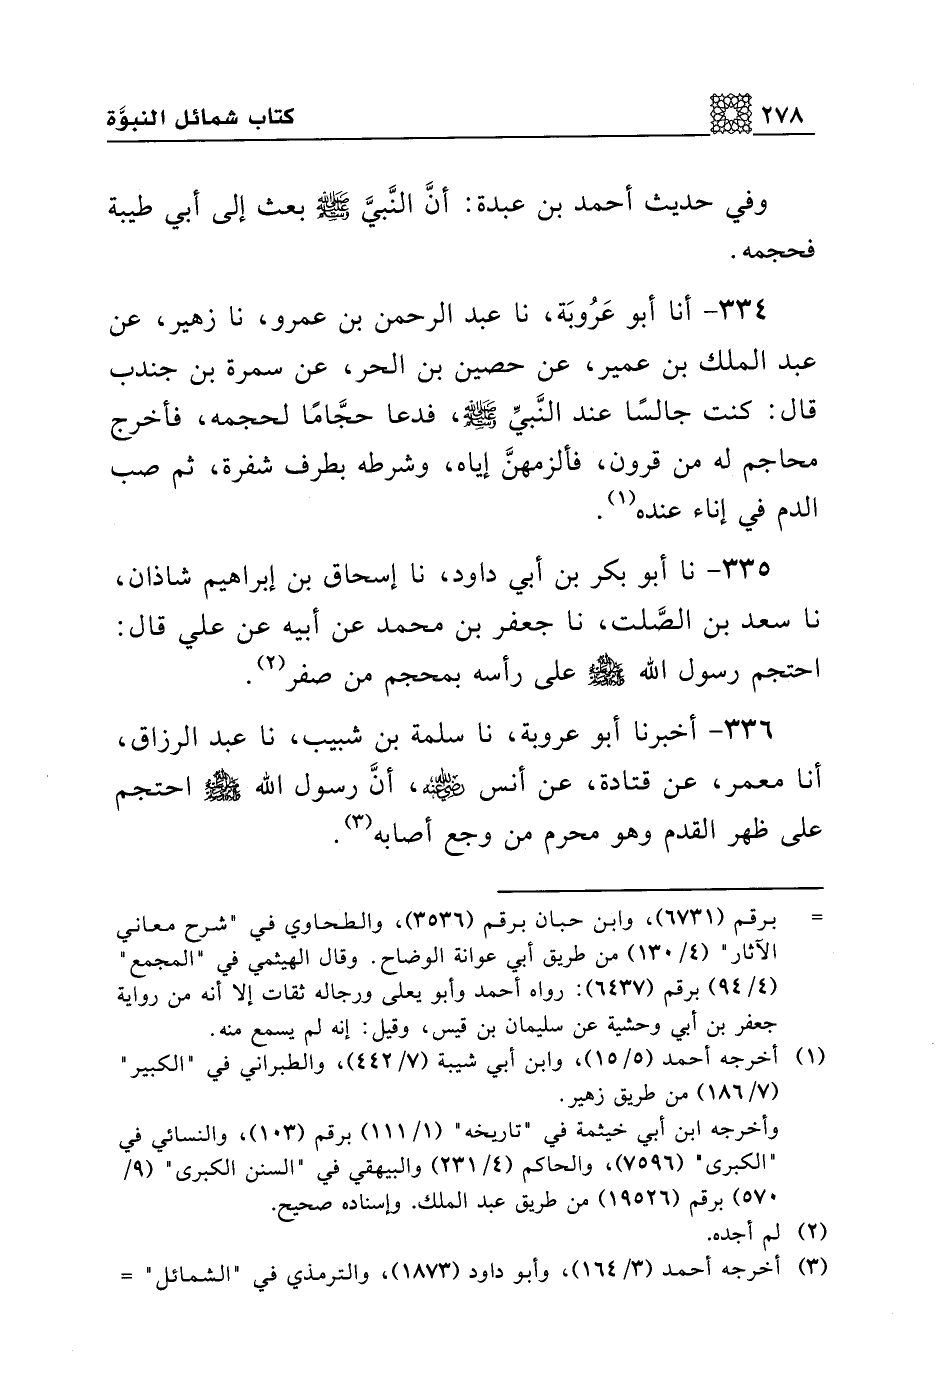 ٢٧٨ كتاب شمائل النبوَّة
وفي حديث أحمد بن عبدة: أنَّ النَّبيَّ ﷺ بعث إلى أبي طيبة
فحجمه.
٣٣٤- أنا أبو عَرُوبَة، نا عبد الرحمن بن عمرو، نا زهير، عن
عبد الملك بن عمير، عن حصين بن الحر، عن سمرة بن جندب
قال: كنت جالسًا عند النَّبيِّ ﷺ، فدعا حجَّامًا لحجمه، فأخرج
محاجم له من قرون، فألزمهنَّ إياه، وشرطه بطرف شفرة، ثم صب
الدم في إناء عنده(١).
٣٣٥- نا أبو بكر بن أبي داود، نا إسحاق بن إبراهيم شاذان،
نا سعد بن الصَّلت، نا جعفر بن محمد عن أبيه عن علي قال:
احتجم رسول الله ﷺ على رأسه بمحجم من صفر(٢).
٣٣٦- أخبرنا أبو عروبة، نا سلمة بن شبيب، نا عبد الرزاق،
أنا معمر، عن قتادة، عن أنس رضي الله عنه، أنَّ رسول الله ﷺ احتجم
على ظهر القدم وهو محرم من وجع أصابه(٣).
= برقم (٦٧٣١)، وابن حبان برقم (٣٥٣٦)، والطحاوي في "شرح معاني
الآثار" (٤/ ١٣٠) من طريق أبي عوانة الوضاح. وقال الهيثمي في "المجمع"
(٤/ ٩٤) برقم (٦٤٣٧): رواه أحمد وأبو يعلى ورجاله ثقات إلا أنه من رواية
جعفر بن أبي وحشية عن سليمان بن قيس، وقيل: إنه لم يسمع منه.
(١) أخرجه أحمد (٥/ ١٥)، وابن أبي شيبة (٧/ ٤٤٢)، والطبراني في "الكبير"
(٧/ ١٨٦) من طريق زهير.
وأخرجه ابن أبي خيثمة في "تاريخه" (١/ ١١١) برقم (١٠٣)، والنسائي في
"الكبرى" (٧٥٩٦)، والحاكم (٤/ ٢٣١) والبيهقي في "السنن الكبرى" (٩/
٥٧٠) برقم (١٩٥٢٦) من طريق عبد الملك. وإسناده صحيح.
(٢) لم أجده.
(٣) أخرجه أحمد (٣/ ١٦٤)، وأبو داود (١٨٧٣)، والترمذي في "الشمائل" =